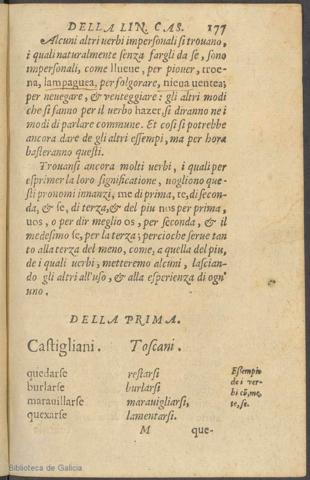 DELLA LIN. CAS. 177
Alcuni altri uerbi impersonali si trouano,
i quali naturalmente senza fargli da se, sono
impersonali, come llueue, per piouer, troe-
na, lampaguea, per folgorare, nieua uentea;
per neuegare, & venteggiare: gli altri modi
che si fanno per il uerbo hazer, si diranno ne i
modi di parlare commune. Et cosi si potrebbe
ancora dare de gli altri essempi, ma per hora
basteranno questi.
Trouansi ancora molti uerbi, i quali per
esprimer la loro significatione, uogliono que-
sti pronomi innanzi, me di prima, te, di secon-
da, & se, di terza, & del piu nos per prima,
uos, o per dir meglio os, per seconda, & il
medesimo se, per la terza; percioche serue tan
to alla terza del meno, come, a quella del piu,
de i quali uerbi, metteremo alcuni, lascian-
do gli altri all'uso, & alla esperienza di ogn'
uno.
DELLA PRIMA.
Castigliani. Toscani.
quedarse restarsi
burlarse burlarsi
marauillarse marauigliarsi,
quexarse lamentarsi.
Essempio
de i ver-
bi cũ, me,
te, se.
M que-
Biblioteca de Galicia